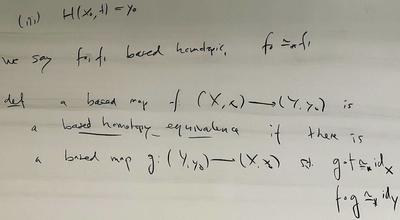 (iii) H(x₀, t) = y₀
we say f₀, f₁ based homotopic, f₀ ≃* f₁
def a based map f (X, x₀) → (Y, y₀) is
a based homotopy equivalence if there is
a based map g: (Y, y₀) → (X, x₀) st. g∘f ≃* id_X
f∘g ≃* id_Y